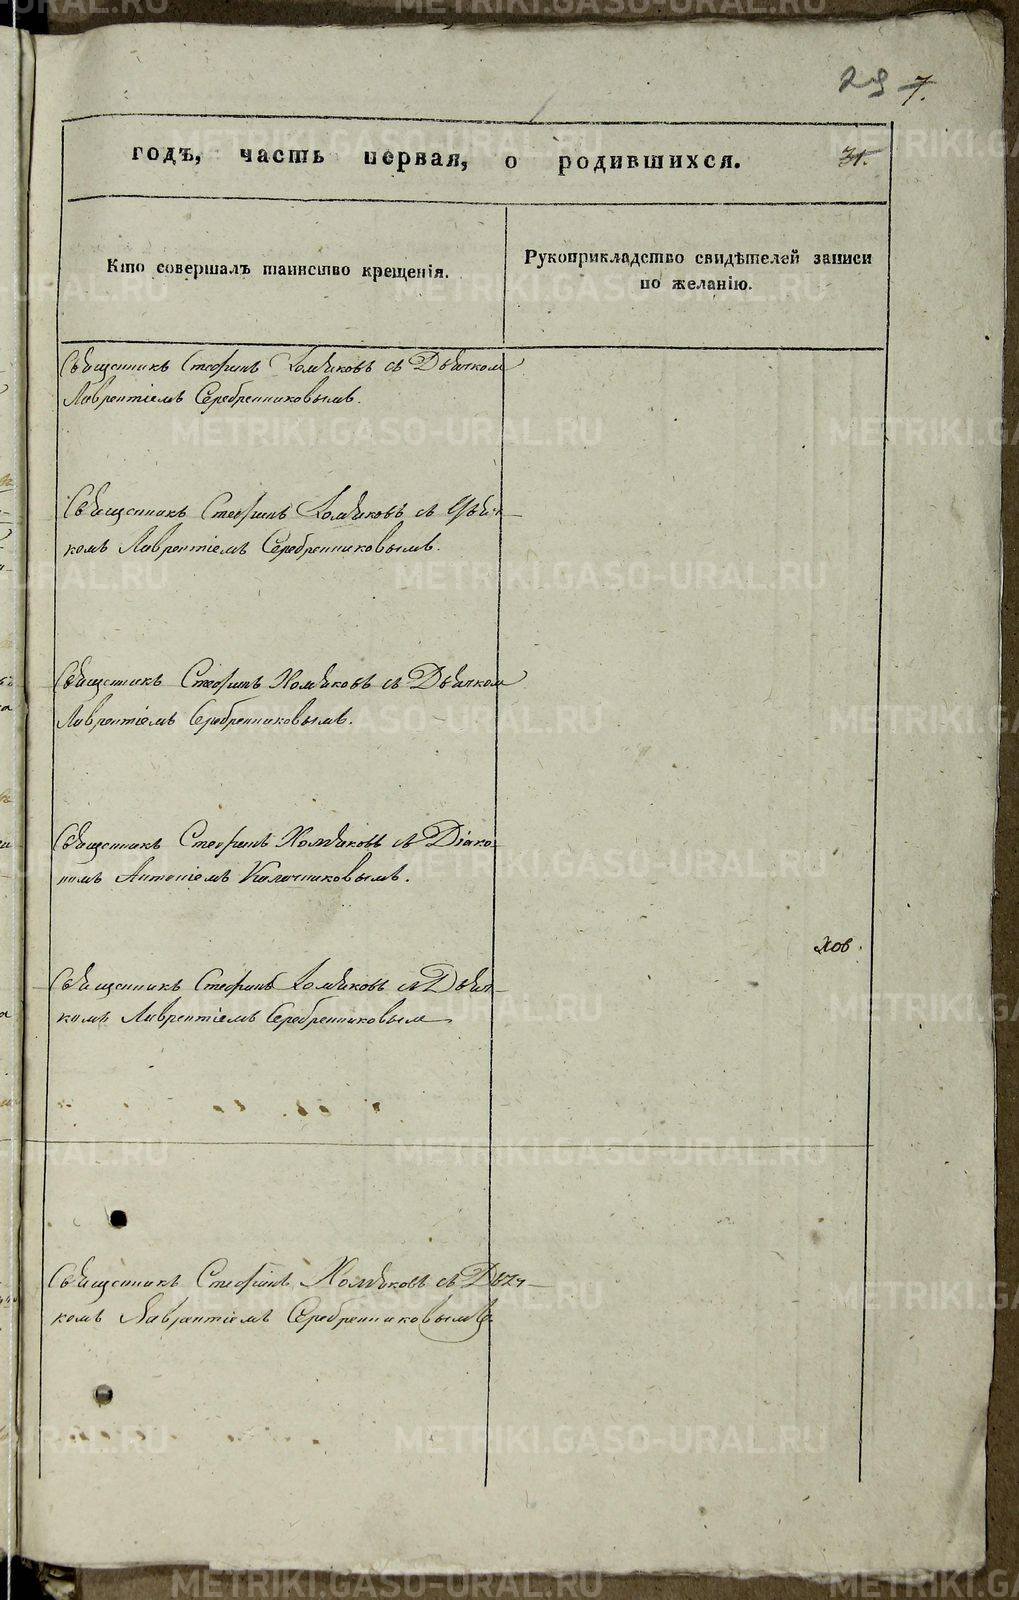 29 7.
годъ, часть первая, о родившихся. 31.
Кто совершалъ таинство крещенія.
Рукоприкладство свидѣтелей записи
по желанію.
Священникъ Стефанъ Хомяковъ съ Дьячком
Лаврентіемъ Серебренниковымъ.
Священникъ Стефанъ Хомяковъ съ Дьяч-
комъ Лаврентіемъ Серебренниковымъ.
Священникъ Стефанъ Хомяковъ съ Дьячком
Лаврентіемъ Серебренниковымъ.
Священникъ Стефанъ Хомяковъ съ Діако-
номъ Антоніемъ
хов.
Священникъ Стефанъ Хомяковъ съ Дьяч-
комъ Лаврентіемъ Серебренниковым
Священникъ Стефанъ Хомяковъ съ Дьяч-
комъ Лаврентіемъ Серебренниковымъ.
METRIKI.GASO-URAL.RU